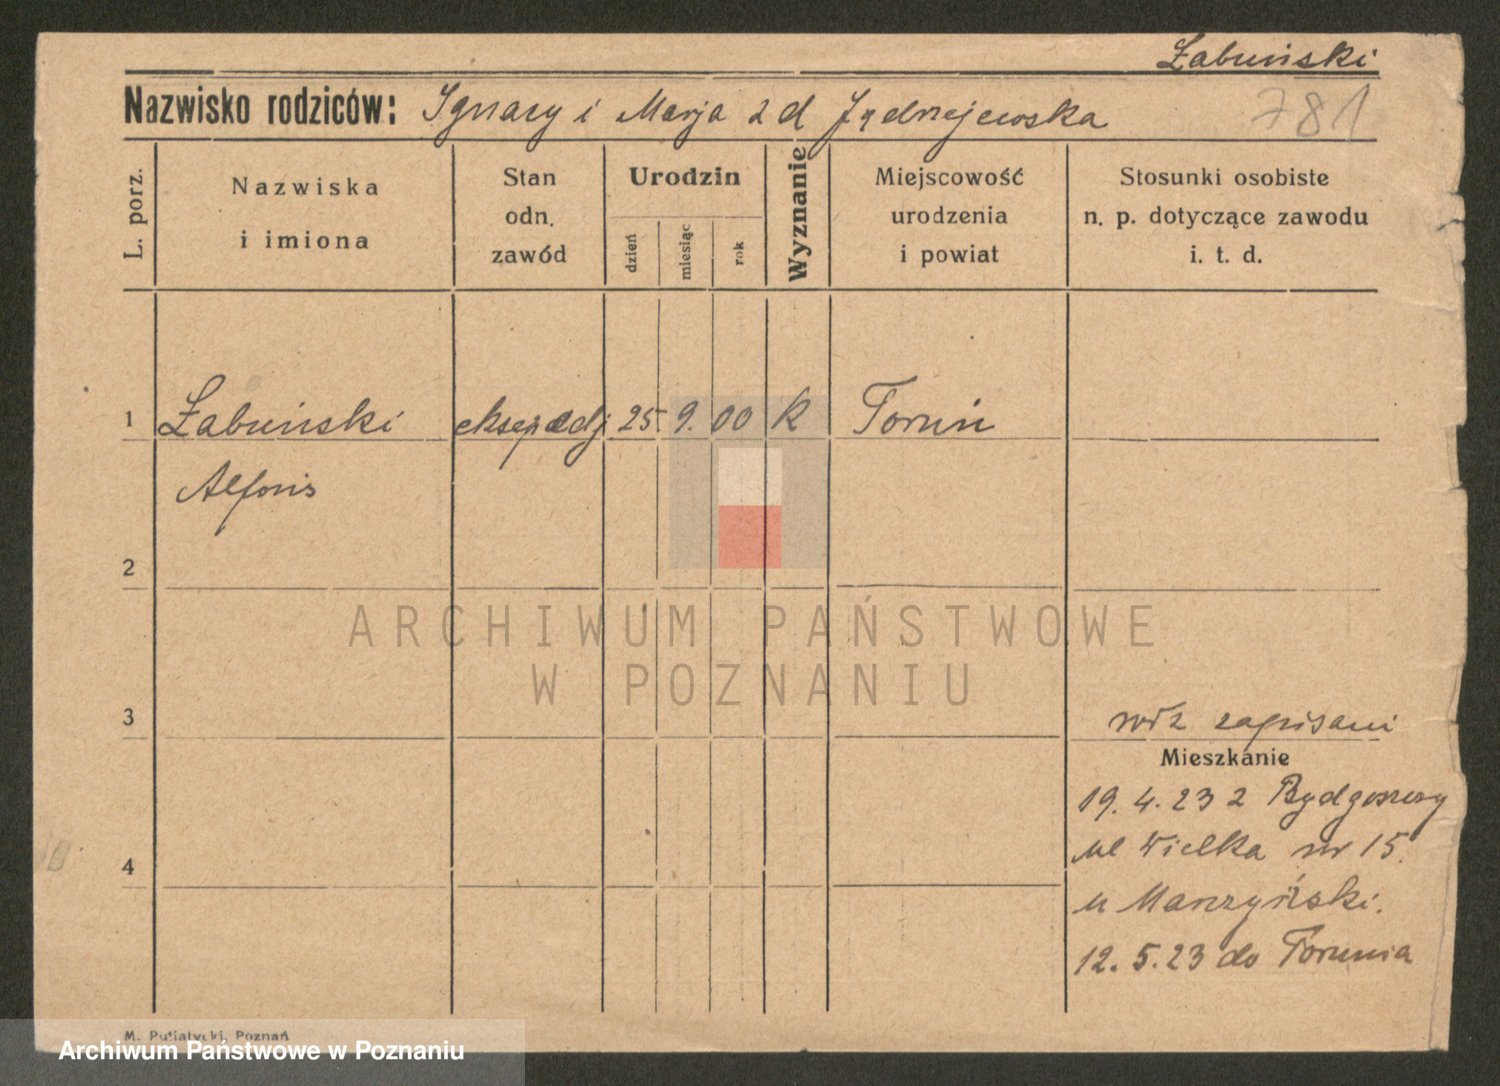 Żabuński
Nazwisko rodziców: Ignacy i Marja z d Jędrzejewska
781
L. porz.
Nazwiska
i imiona
Stan
odn.
zawód
Urodzin
dzień
miesiąc
rok
Wyznanie
Miejscowość
urodzenia
i powiat
Stosunki osobiste
n. p. dotyczące zawodu
i. t. d.
1 Żabuński eksped 25. 9. 00 k Toruń
Alfons
2
ARCHIWUM PAŃSTWOWE
W POZNANIU
3
zapisani
Mieszkanie
19. 4. 23 z Bydgoszczy
ul Wielka nr 15.
u Marzyński.
12. 5. 23 do Torunia
4
M. Putiatycki, Poznań
Archiwum Państwowe w Poznaniu